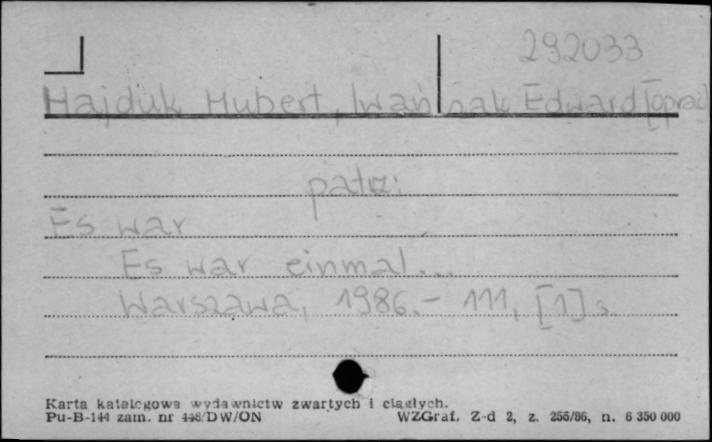 292033
Hajduk Hubert, Iwańczak Edward [oprac]
patrz:
Es war
Es war einmal...
Warszawa, 1986.- 111, [1] s.
Karta katalogowa wydawnictw zwartych i ciągłych.
Pu-B-144 zam. nr 448/DW/ON WZGraf. Z-d 2, z. 255/86, n. 6 350 000